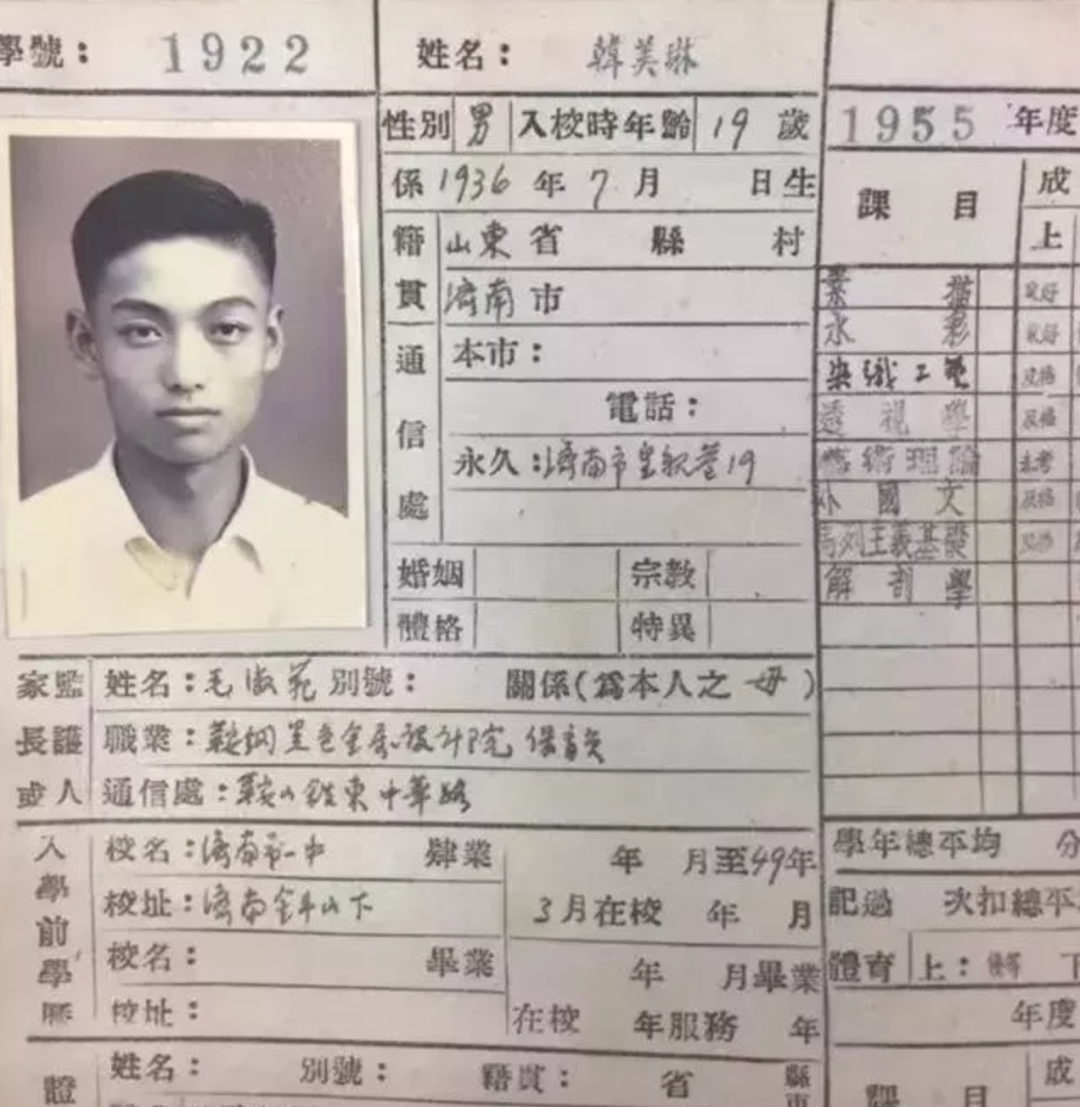 學號：1922
姓名：韓美琳
性別 男 入校時年齡 19 歲
係1936年7月 日生
籍貫 山東省 縣 村
濟南市
通信處 本市：
電話：
永久：濟南市皇親巷19
婚姻 宗教
體格 特異
家長或監護人 姓名：毛淑苑 別號： 關係(為本人之 母)
職業：鞍鋼黑色金屬設計院 保育員
通信處：鞍山鉄東中華路
入學前學歷 校名：濟南市一中 肄業 年 月至49年
校址：濟南金牛山下 3月在校 年 月
校名： 畢業 年 月畢業
校址： 在校 年服務 年
證 姓名： 別號： 籍貫： 省 縣市
1955 年度
課目 成
上
素描 良好
水彩 良好
染織工藝 及格
透視學 及格
藝術理論 未考
外國文 及格
馬列主義基礎 及格
解剖學
學年總平均 分
記過 次扣總平
體育 上：優等 下
年度
課目 成